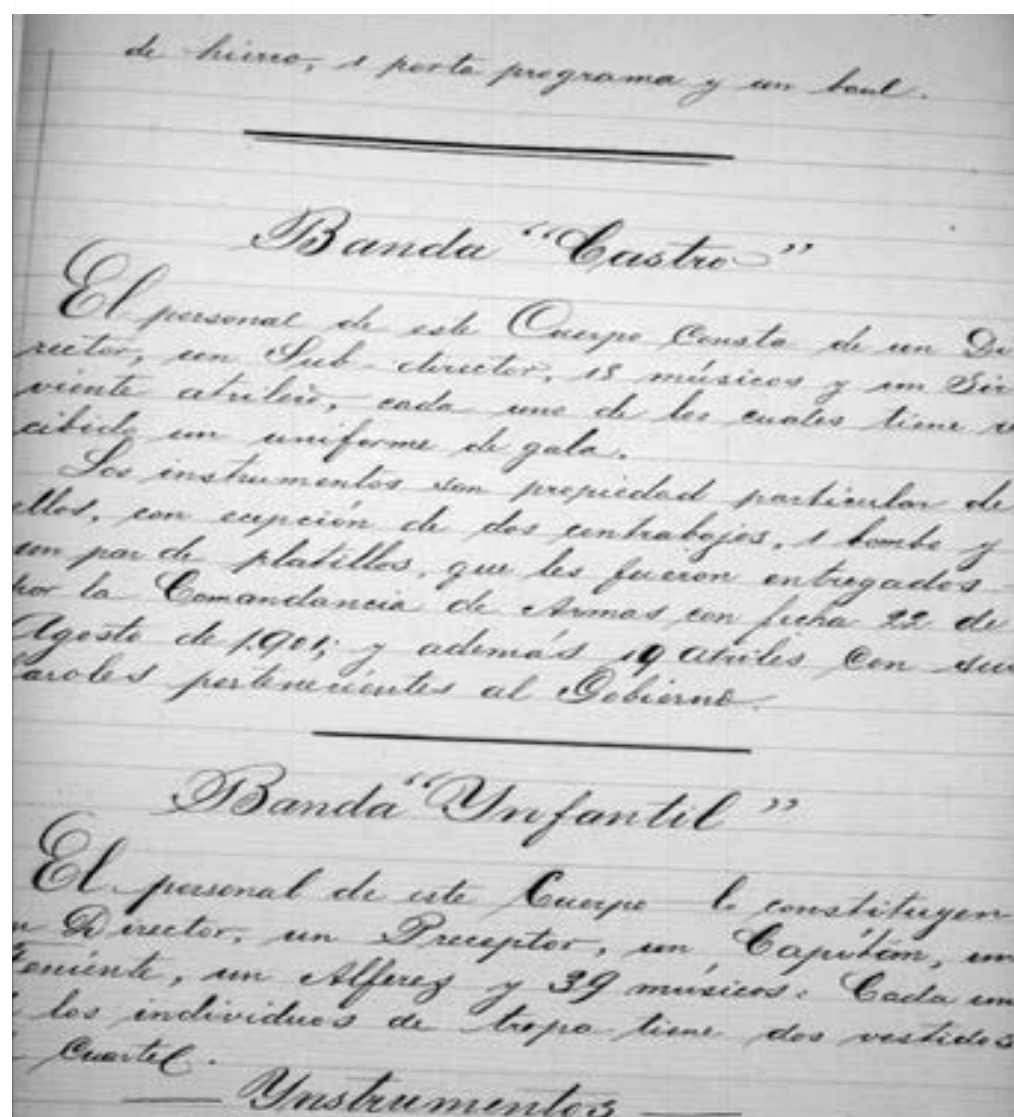 de hierro, 1 porta programa y un baul.
Banda "Castro"
El personal de este Cuerpo Consta de un Di
rector, un Sub-director, 18 músicos y un Sir
viente atrilero, cada uno de los cuales tiene re
cibido un uniforme de gala.
Los instrumentos son propiedad particular de
ellos, con ecepción de dos contrabajos, 1 bombo y
un par de platillos, que les fueron entregados
por la Comandancia de Armas con fecha 22 de
Agosto de 1.901; y además 19 atriles Con sus
faroles pertenecientes al Gobierno.
Banda "Ynfantil"
El personal de este Cuerpo lo constituyen
un Director, un Preceptor, un Capitám, un
Teniente, un Alferez y 39 músicos: Cada uno
de los individuos de tropa tiene dos vestidos
Cuartel.
Ynstrumentos